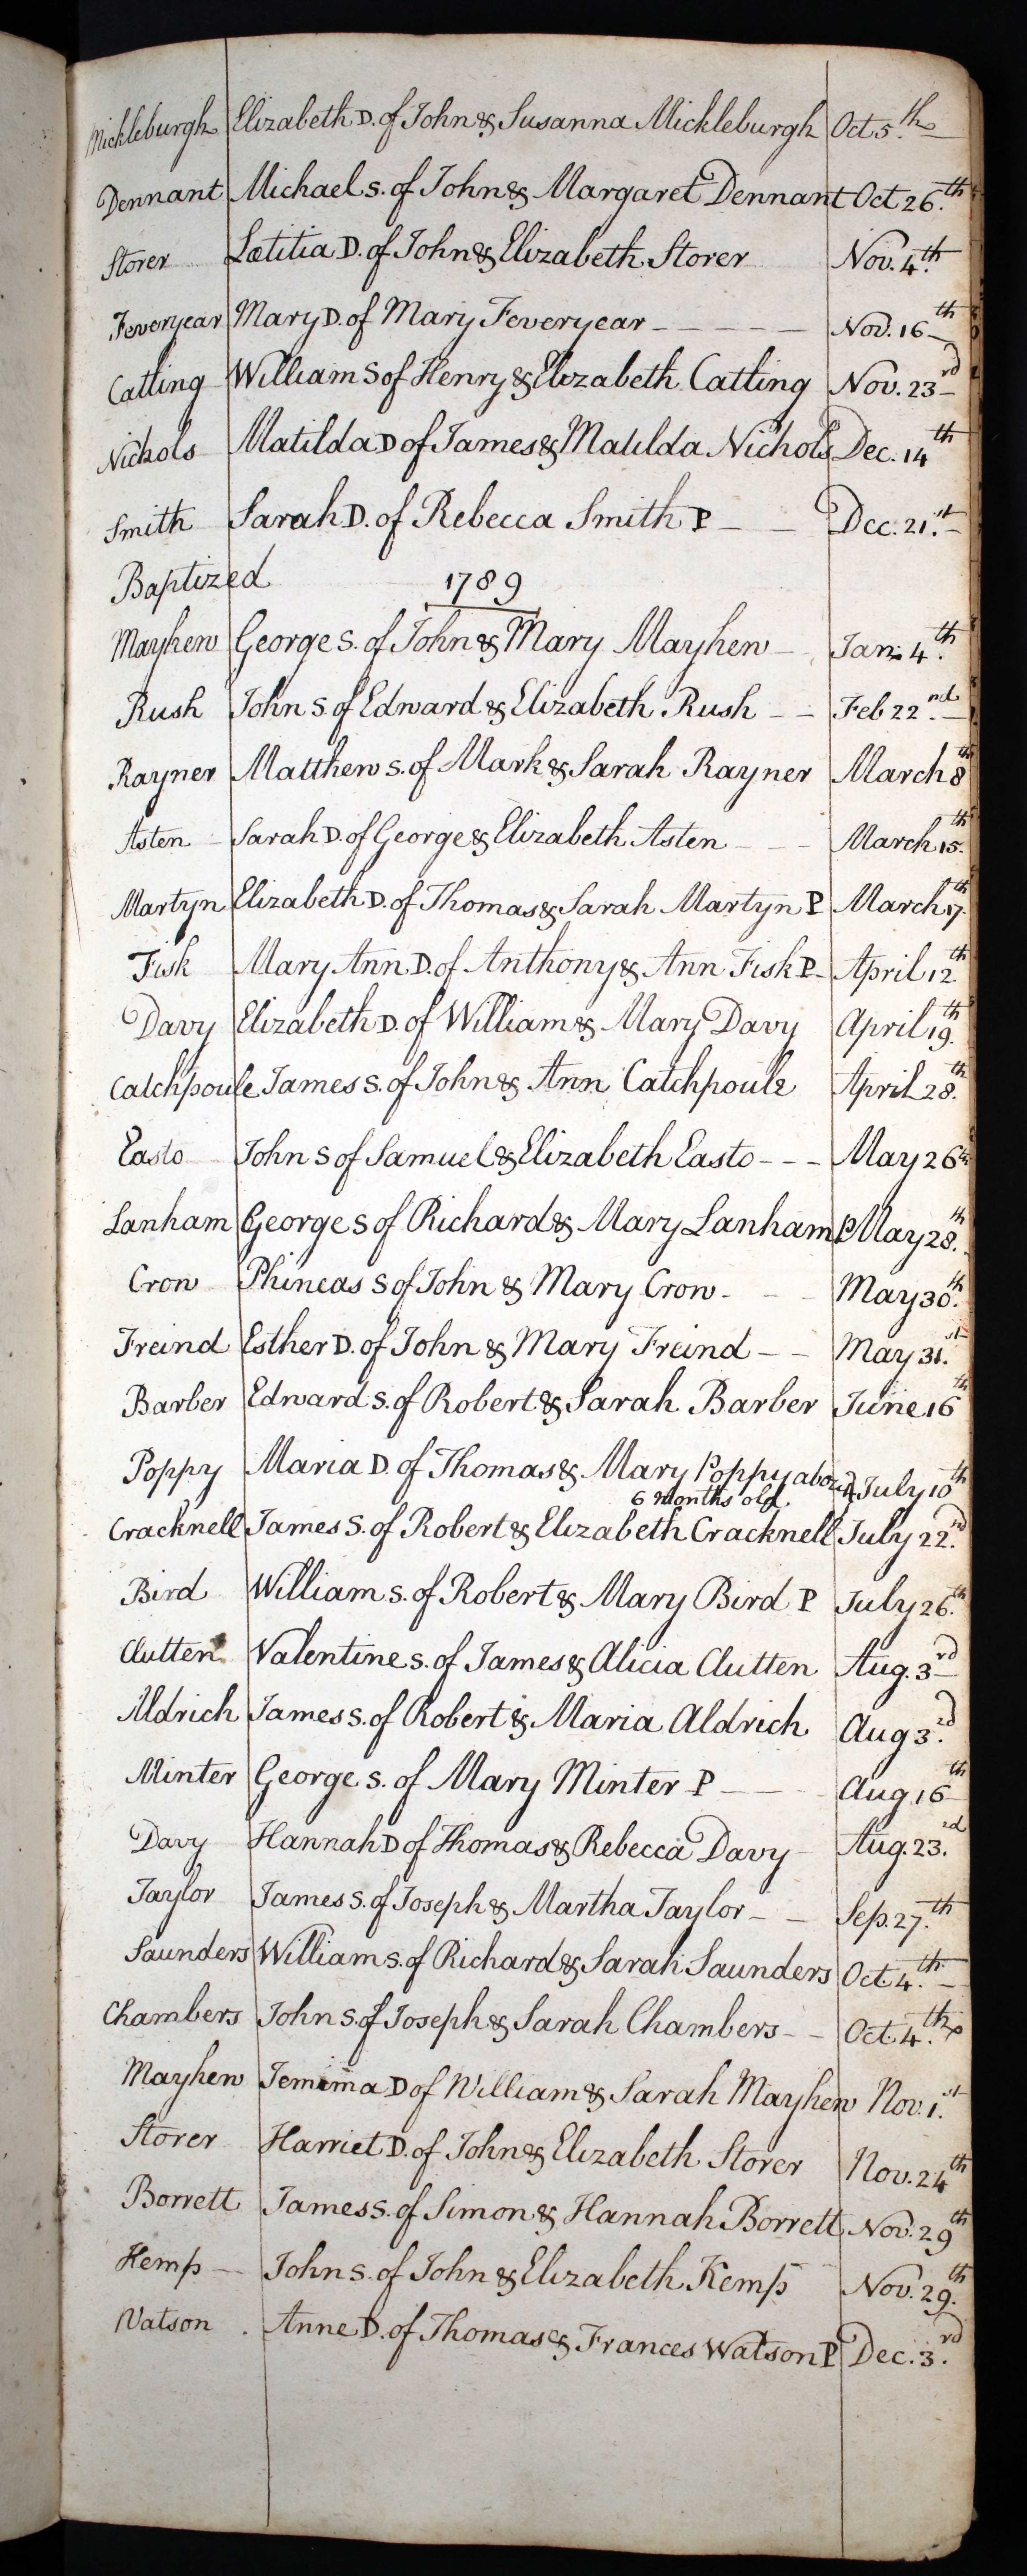 Mickleburgh Elizabeth D. of John & Susanna Mickleburgh Oct 5.th
Dennant Michael s. of John & Margaret Dennant Oct 26.th
Storer Lætitia D. of John & Elizabeth Storer Nov. 4.th
Feveryear Mary D. of Mary Feveryear - - - - - Nov. 16th
Catling William S of Henry & Elizabeth Catling Nov. 23rd
Nichols Matilda D of James & Matilda Nichols Dec. 14th
Smith Sarah D. of Rebecca Smith P - - Dec. 21.st
Baptized 1789
Mayhew George S. of John & Mary Mayhew - Jan: 4.th
Rush John S. of Edward & Elizabeth Rush - - Feb 22.nd
Rayner Matthew s. of Mark & Sarah Rayner March 8th
Asten Sarah D. of George & Elizabeth Asten - - - March 15.th
Martyn Elizabeth D. of Thomas & Sarah Martyn P March 17.th
Fisk Mary Ann D. of Anthony & Ann Fisk P - April 12.th
Davy Elizabeth D. of William & Mary Davy April 19.th
Catchpoule James s. of John & Ann Catchpoule April 28.th
Easto John S of Samuel & Elizabeth Easto - - - May 26th
Lanham George S of Richard & Mary Lanham P May 28.th
Crow Phineas S of John & Mary Crow - - - May 30.th
Freind Esther D. of John & Mary Freind - - May 31.st
Barber Edward s. of Robert & Sarah Barber June 16th
Poppy Maria D. of Thomas & Mary Poppy about July 10th
6 Months old
Cracknell James S. of Robert & Elizabeth Cracknell July 22.nd
Bird William s. of Robert & Mary Bird P July 26.th
Clutten Valentine s. of James & Alicia Clutten Aug. 3rd
Aldrich James s. of Robert & Maria Aldrich Aug 3.rd
Minter George s. of Mary Minter P - - Aug 16th
Davy Hannah D of Thomas & Rebecca Davy Aug. 23.rd
Taylor James S. of Joseph & Martha Taylor - - Sep. 27.th
Saunders William s. of Richard & Sarah Saunders Oct. 4.th
Chambers John S. of Joseph & Sarah Chambers - - Oct. 4.th
Mayhew Jemima D of William & Sarah Mayhew Nov. 1.st
Storer Harriet D. of John & Elizabeth Storer Nov. 24th
Borrett James s. of Simon & Hannah Borrett Nov. 29th
Kemp - John s. of John & Elizabeth Kemp Nov. 29.th
Watson . Anne D. of Thomas & Frances Watson P Dec. 3.rd